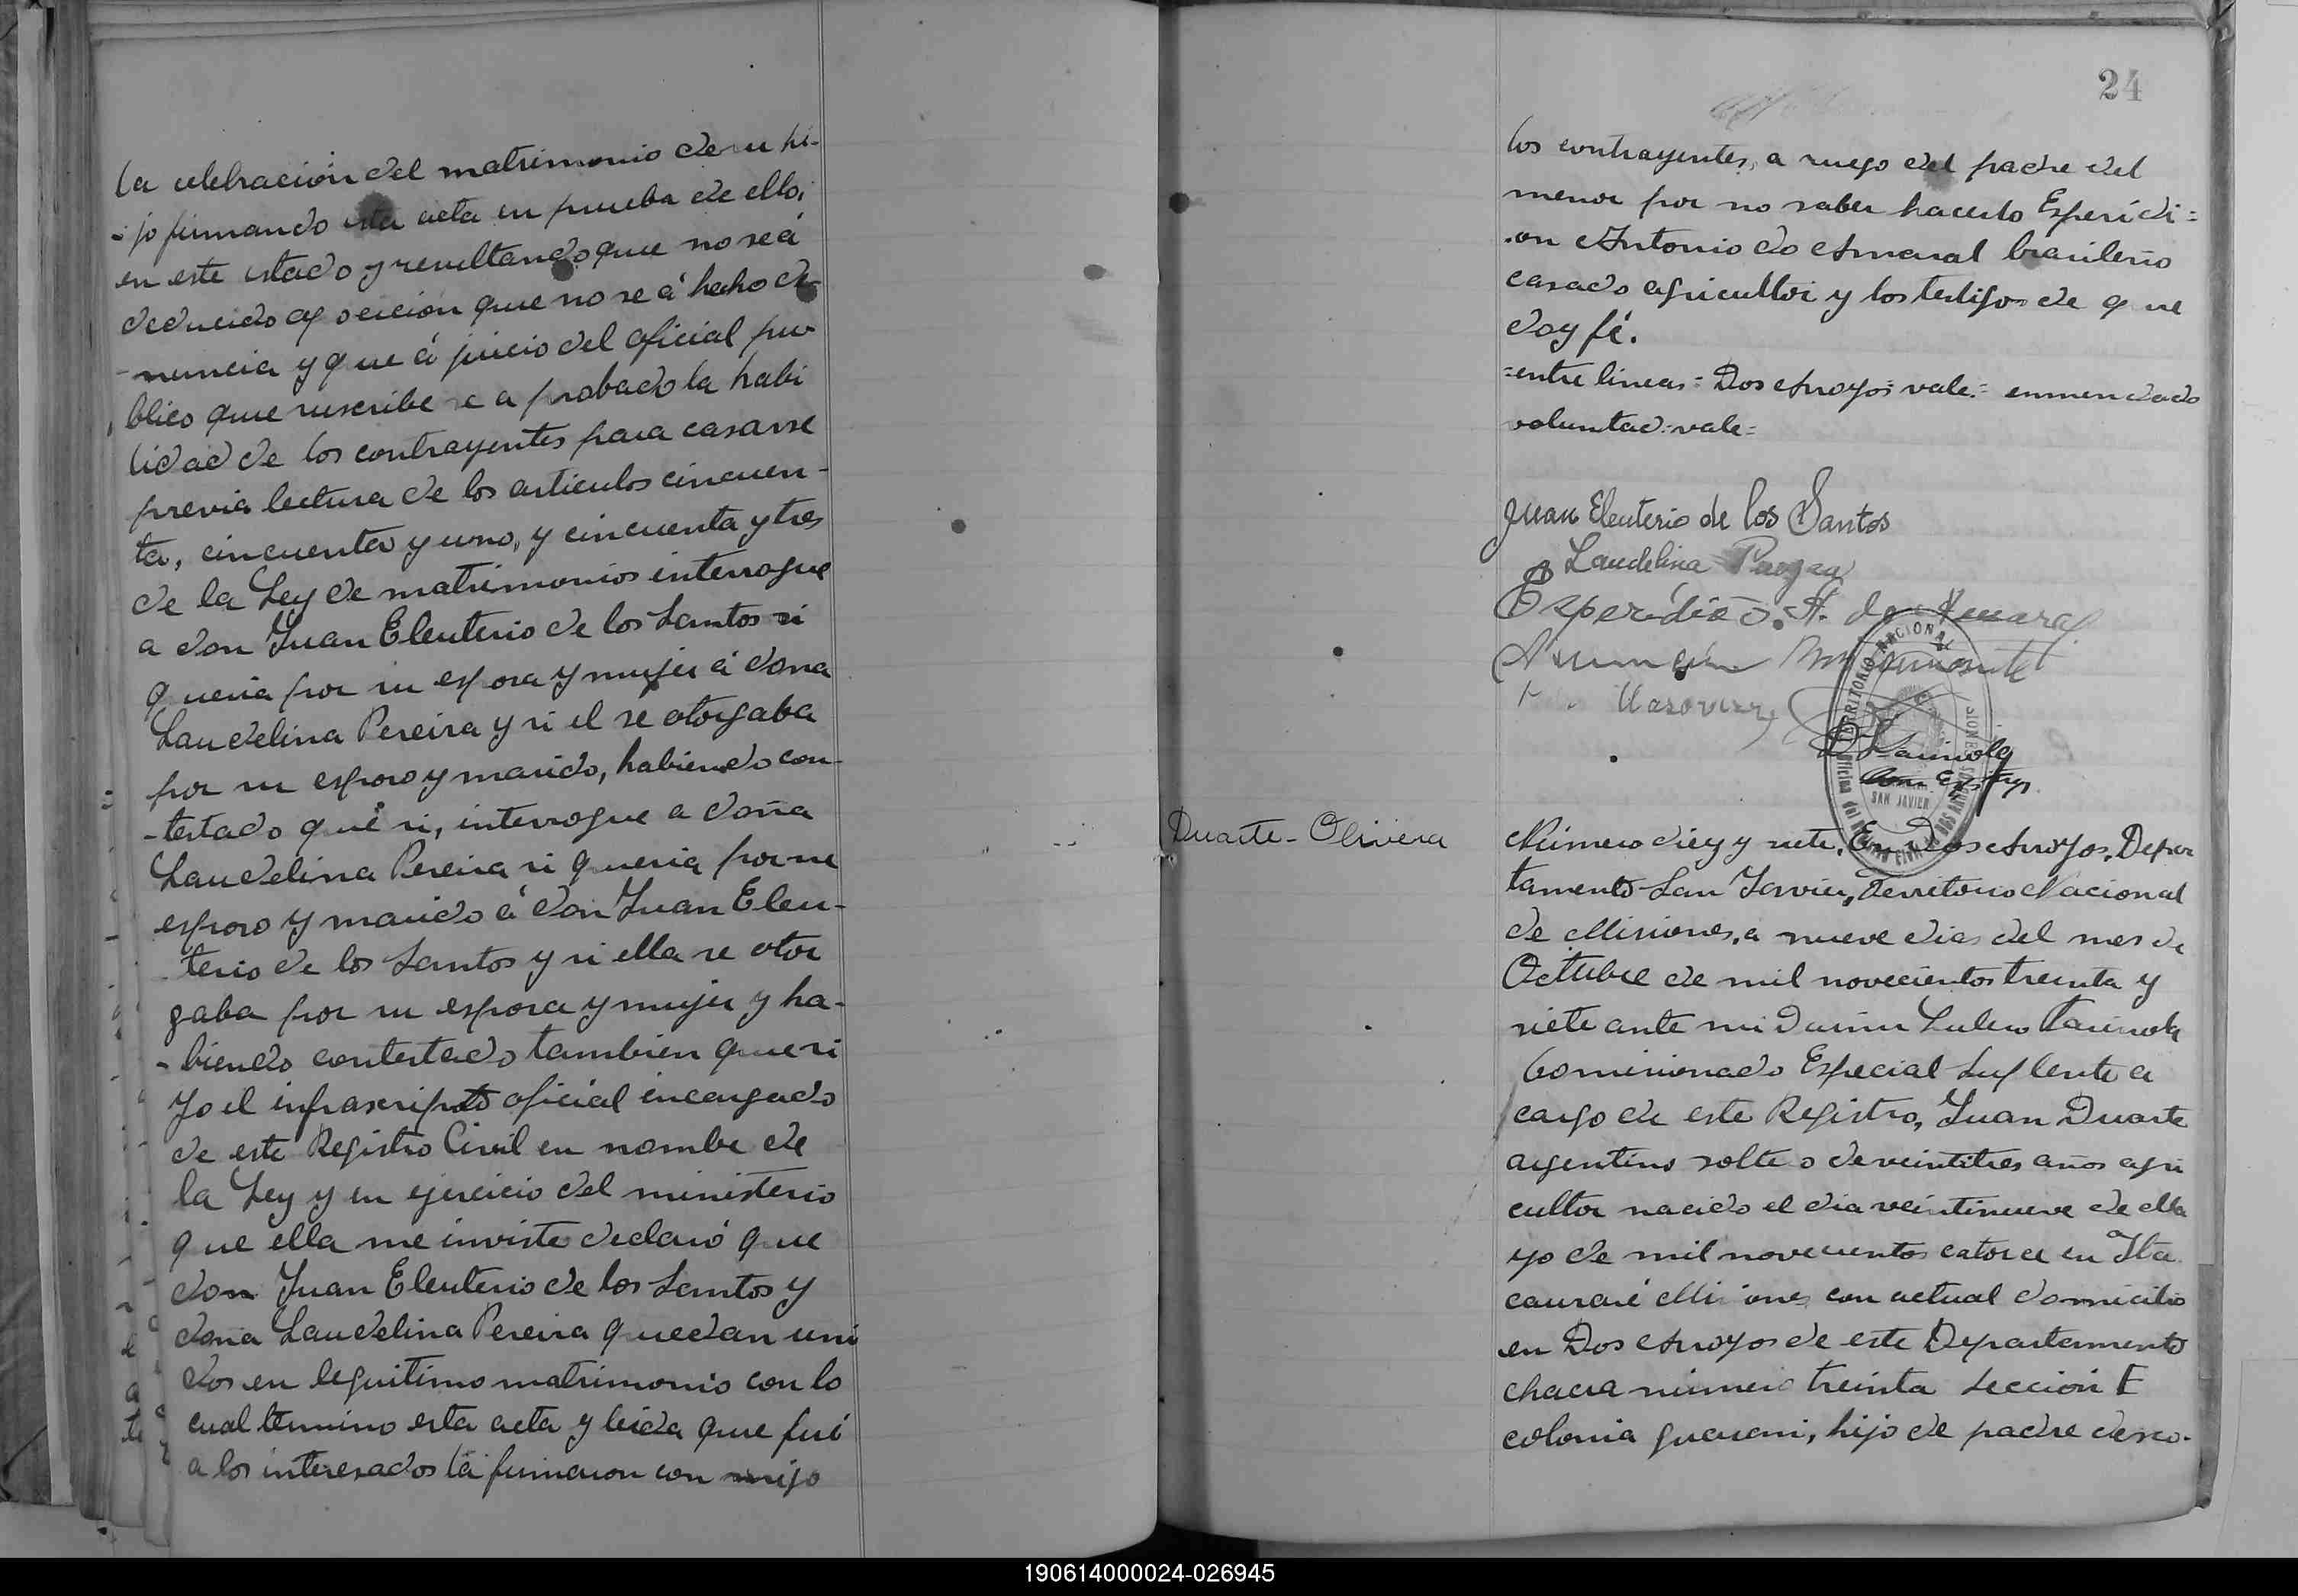 la celebración del matrimonio de su hi-
-jo firmando esta acta en prueba de ello,
en este estado y resultando que no se á
deducido oposición que no se á hecho de-
-nuncia y que á juicio del oficial pu
blico que suscribe se a probado la habi
lidad de los contrayentes para casarse
previa lectura de los articulos cincuen-
ta, cincuenta y uno, y cincuenta y tres
de la Ley de matrimonios interrogue
a don Juan Eleuterio de los Santos si
queria por su esposa y mujer á dona
Laudelina Pereira y si el se otorgaba
por su esposo y marido, habiendo con-
-testado que si, interrogue a doña
Laudelina Pereira si queria por su
esposo y marido á don Juan Eleu-
terio de los Santos y si ella se otor
gaba por su esposa y mujer y ha-
-biendo contestado tambien que si
Yo el infrascripto oficial encargado
de este Registro Civil en nombre de
la Ley y en ejercicio del ministerio
que ella me inviste declaró que
don Juan Eleuterio de los Santos y
doña Laudelina Pereira quedan uni
dos en leguitimo matrimonio con lo
cual termino esta acta y leida que fué
a los interesados la firmaron con migo
24
los contrayentes, a ruego del padre del
menor por no saber hacerlo Esperidi=
.on Antonio do Amaral brasileño
casado agricultor y los testigos de que
doy fé.
=entre lineas= Dos Arroyos= vale.= enmendado
voluntad=vale=
Juan Eleuterio de los Santos
Laudelina
Esperidião A. do Amaral
TERRITORIO NACIONAL
SAN JAVIER
Duarte - Olivera
Número diez y siete. En Dos Arroyos, Depar
tamento San Javier, Territorio Nacional
de Misiones, a nueve dias del mes de
Octubre de mil novecientos treinta y
siete ante mi
Comisionado Especial Suplente a
cargo de este Registro, Juan Duarte
argentino soltero de veintitres años agri
cultor nacido el dia veintinueve de Ma
yo de mil novecientos catorce en Ita
caruaré Misiones con actual domicilio
en Dos Arroyos de este Departamento
chacra número treinta Sección E
colonia guarani, hijo de padre desco-
190614000024-026945